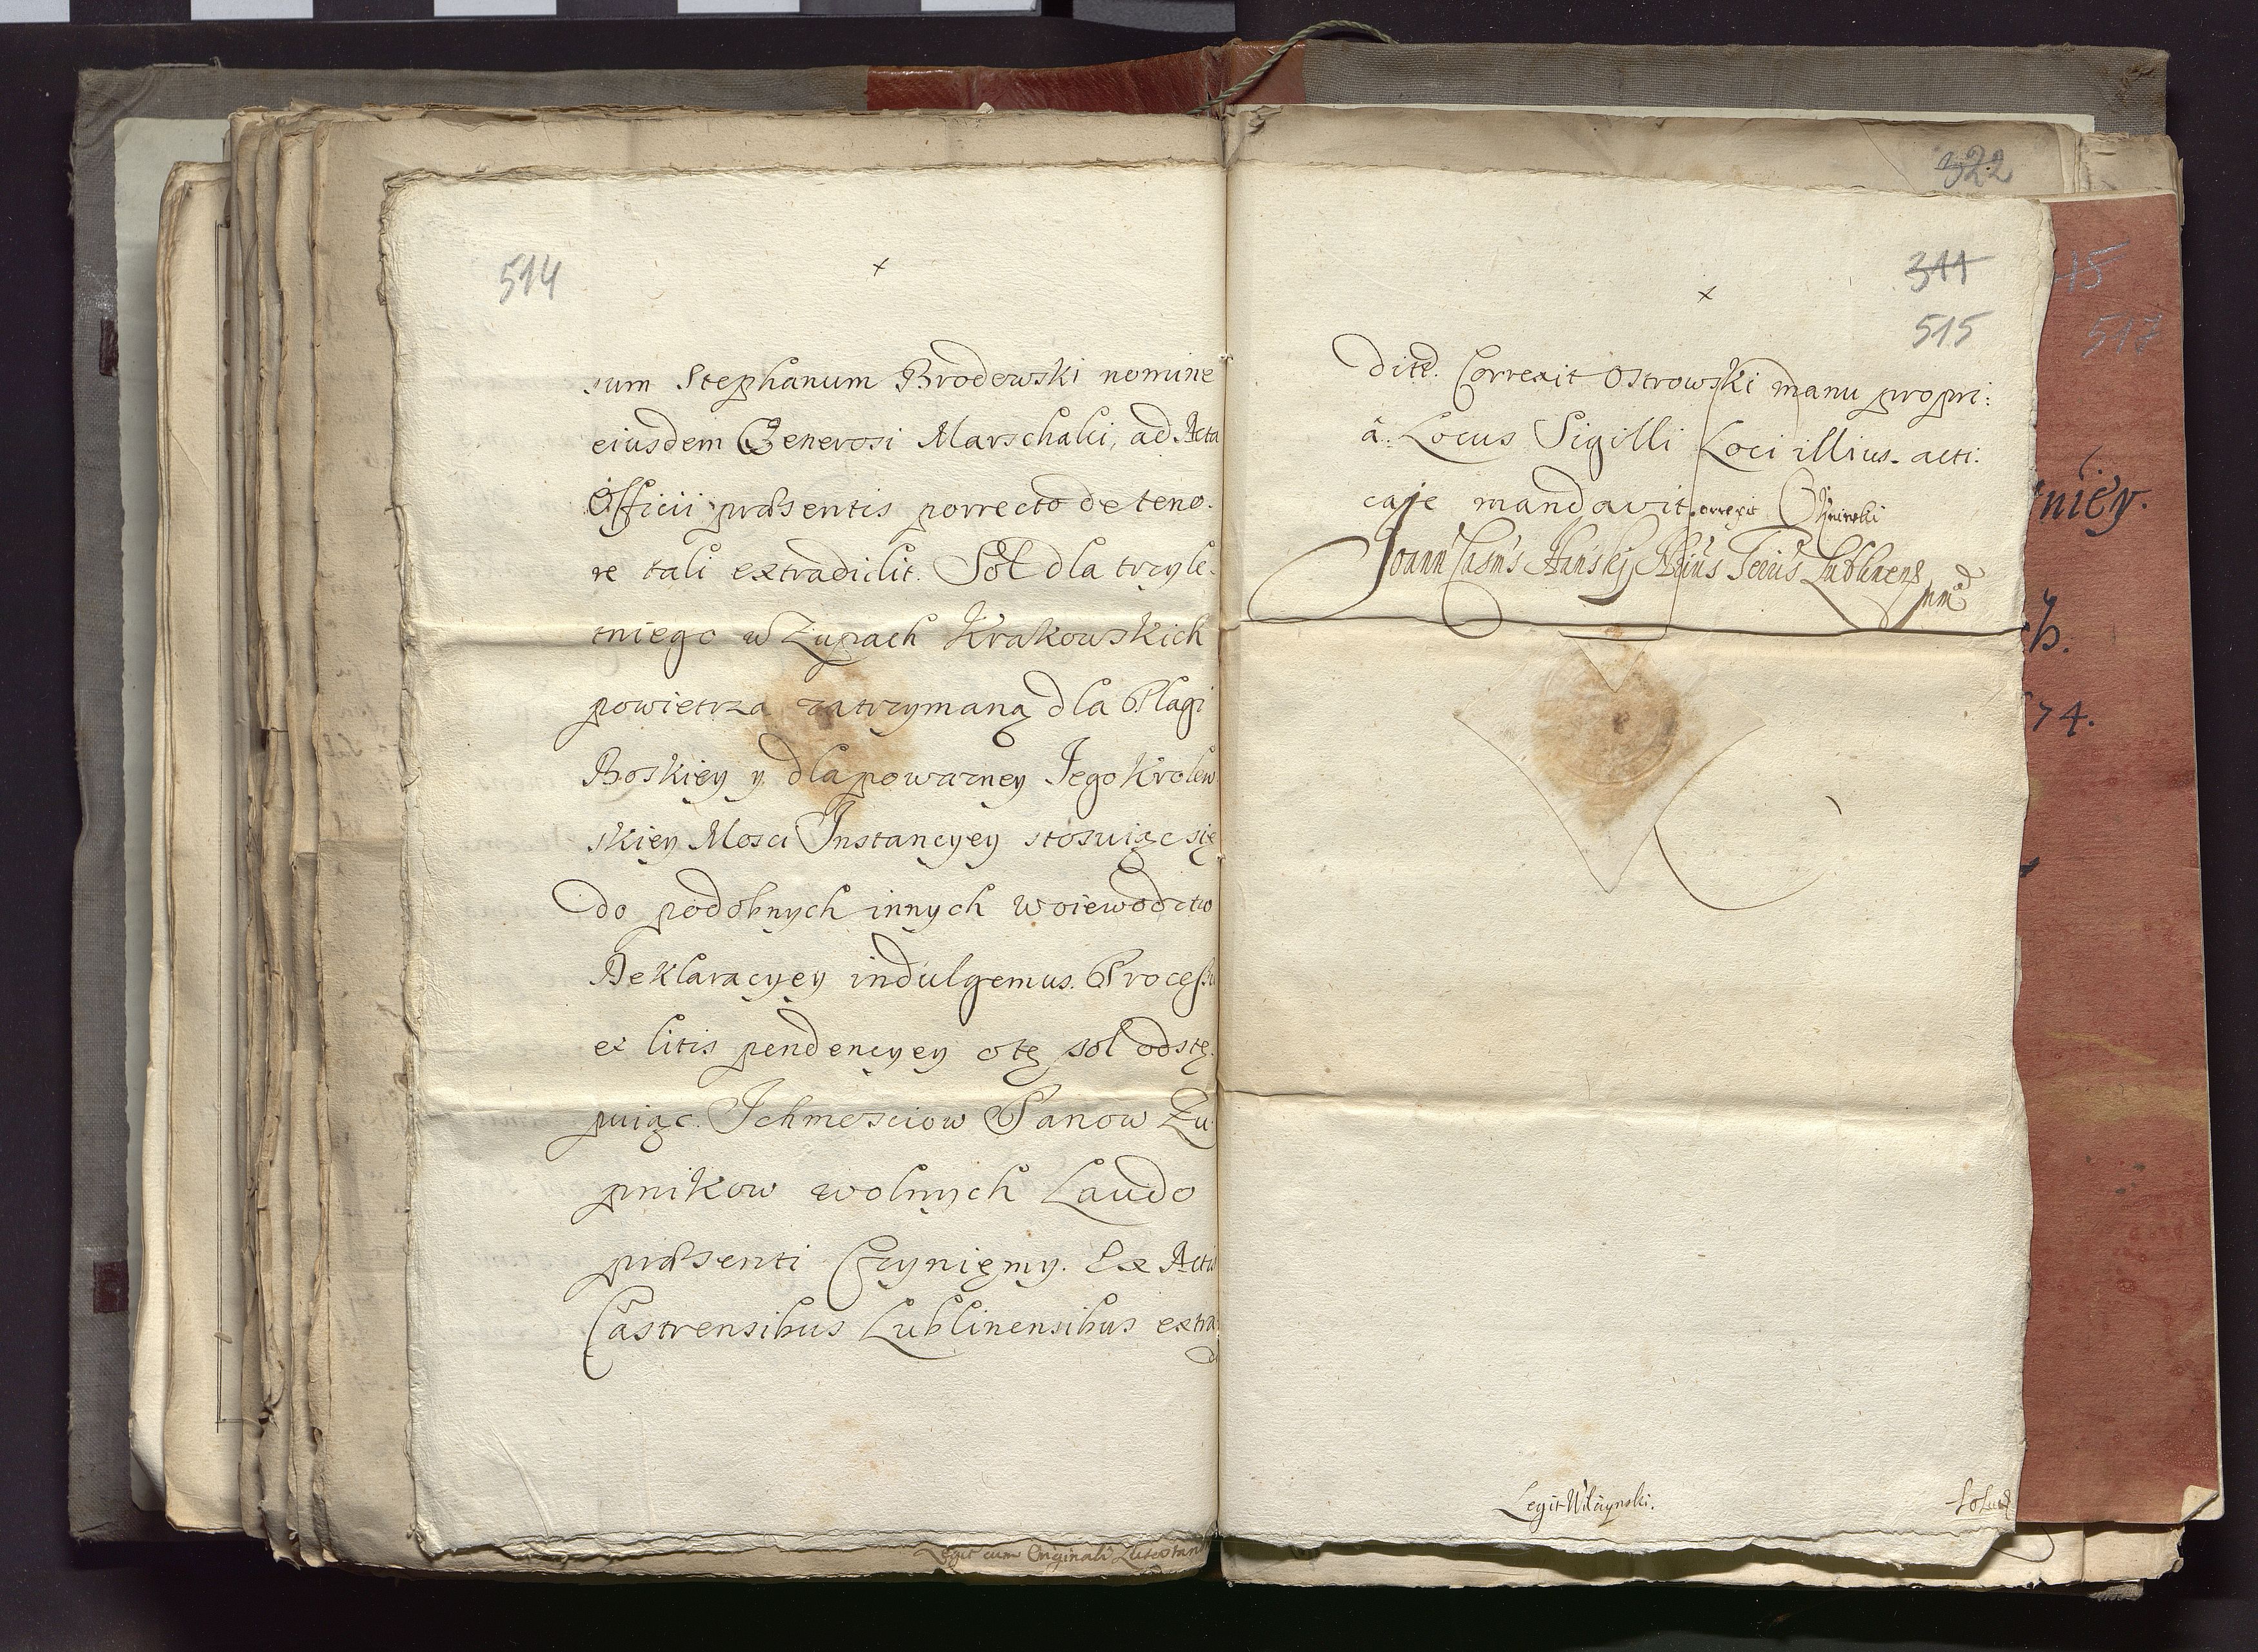 514
×
sum Stephanum Brodowski nomine
eiusdem Generosi Marschalci, ad Acta
Officii præsentis porrecto de teno-
re tali extradidit. Sol dla trzyle-
tniego w Zupach Krakowskich
powietrza zatrzymaną dla Plagi
Boskiey y dla powazney Jego Krolew
skiey Mosci Instancyey stosuiąc się
do podobnych innych woiewodztw
Deklaracyey indulgemus. Processu
ex litis pendencyey o tę sol odstę-
puiąc. Ichmosciow Panow Zu-
pnikow wolnych Laudo
præsenti Czyniemy. Ex Actis
Castrensibus Lublinensibus extra
322
311
515
×
dit. Correxit Ostrowski manu propri:
a: Locus Sigilli Loci illius. acti:
care mandavit
Correxit
Joann
Lublinens
mm
Legit Wilczynski.
Legit cum Originali
niey.
74.